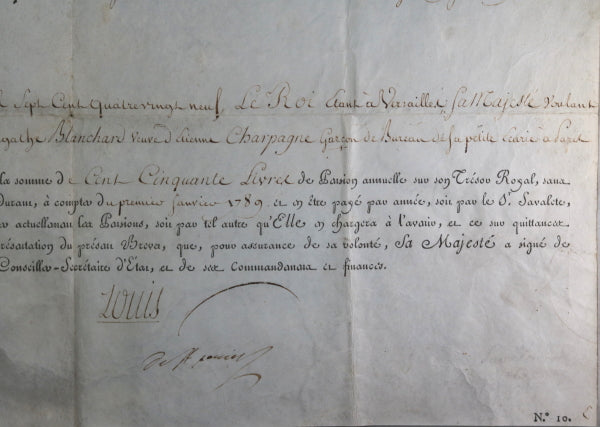 Sept Cent quatrevingt neuf Le Roi étant à Versailles, Sa Majesté voulant
Agathe Blanchard veuve d'Etienne Charpagne Garçon de Bureau de sa petite Ecurie à Paris
la somme de Cent Cinquante Livres de Pension annuelle sur son Trésor Royal, sa vie
durant, à compter du premier Janvier 1789. et en être payé par année, soit par le Sr. Savalete,
actuellement les Pensions, soit par tel autre qu'Elle en chargera à l'avenir, et ce sur quittances
présentation du présent Brevet, que, pour assurance de sa volonté, Sa Majesté a signé de
Conseiller-Secrétaire d'État, et de ses Commandemens et finances.
Louis
N.º 10.